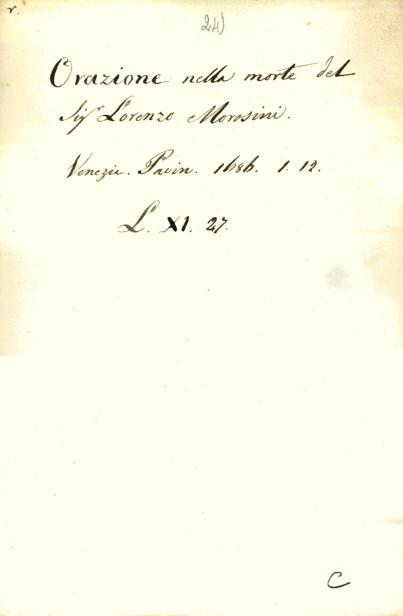 r.
24)
Orazione nella morte del
Sigr Lorenzo Morosini.
Venezia. Pavin. 1686. 1. 12.
L. XI. 27.
C